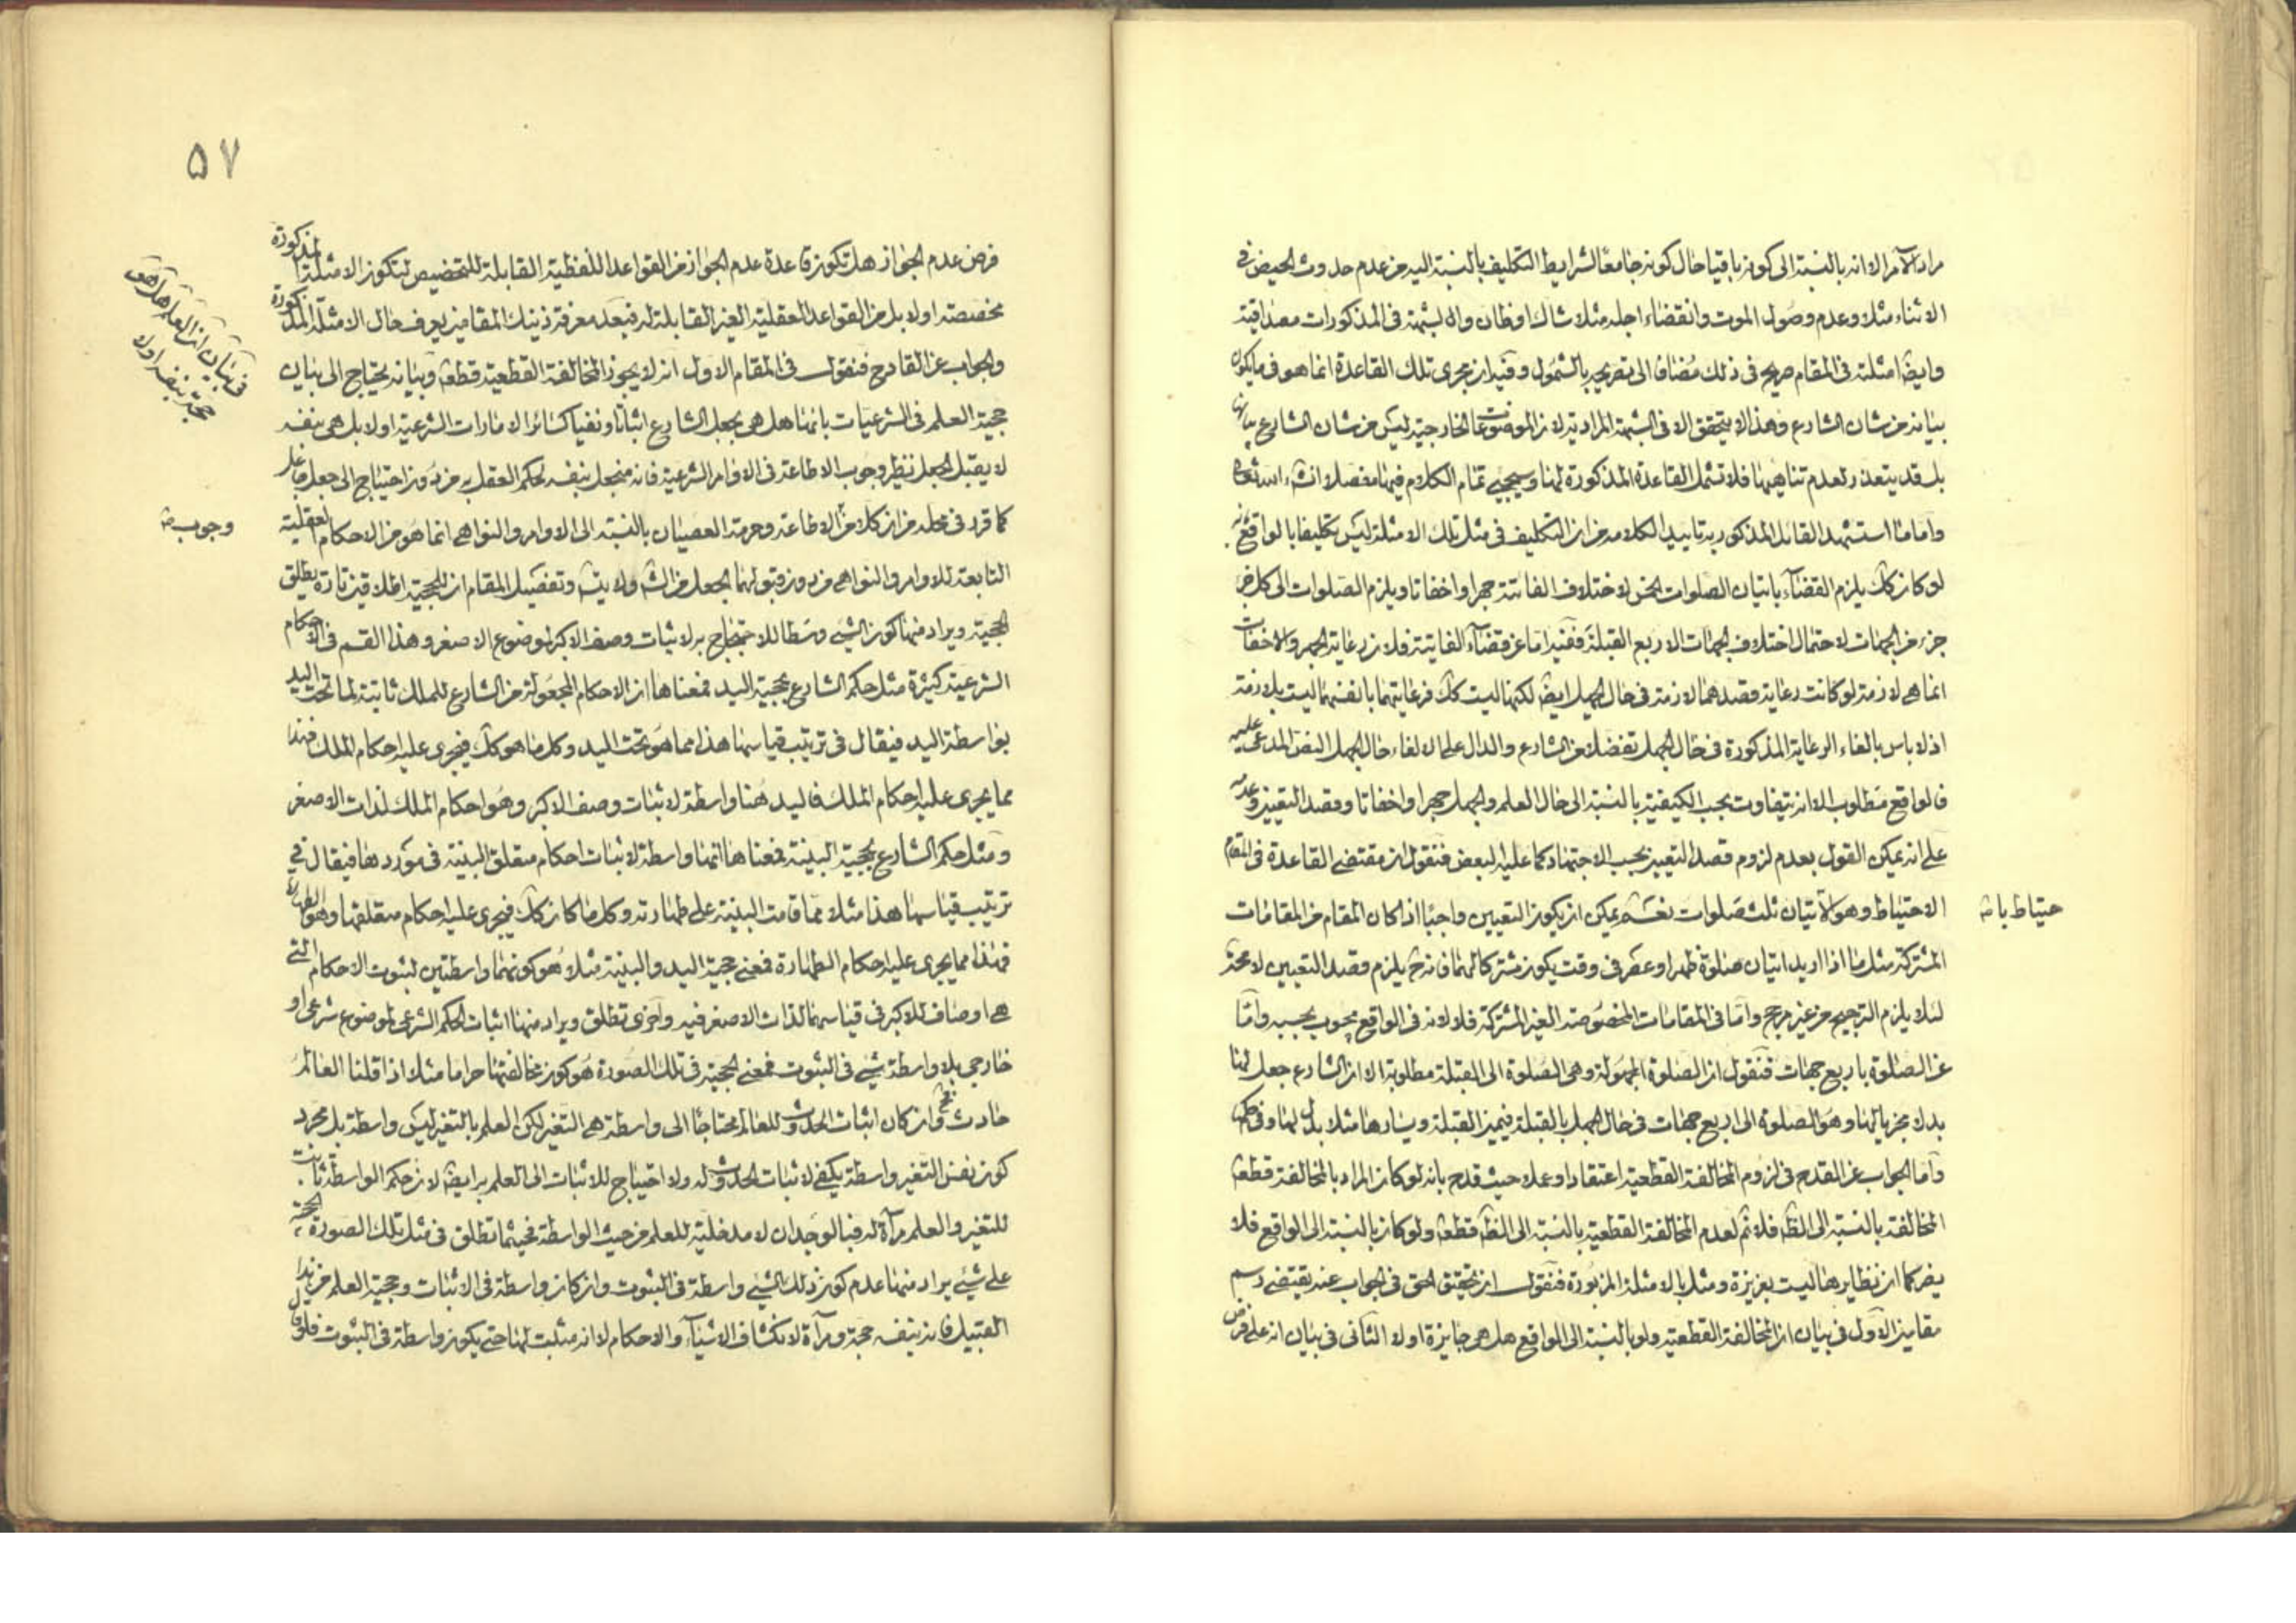 مراد الآمر الا انه بالنسبة الى كونه باقيا حال كونه جامعا لشرايط التكليف بالنسبة اليه من عدم حدوث الحيض فى
الاثناء مثلا وعدم وصول الموت وانقضاء اجله مثلا شاك او ظان والشبهة فى المذكورات مصداقية
وايضا امثلته فى المقام صريح فى ذلك مضافا الى تصريحه بالشمول وفيه ان مجرى تلك القاعدة انما هو فى ما يكون
بيانه من شان الشارع وهذا لا يتحقق الا فى الشبهة المرادية لان الموضوعات الخارجية ليس من شان الشارع بيانها
بل قد يتعذر لعدم تناهيها فلا تشمل القاعدة المذكورة لها وسيجئ تمام الكلام فيها مفصلا انشاء الله تعالى
واما ما استشهد القائل المذكور به تاييدا لكلامه من ان التكليف فى مثل تلك الامثلة ليس تكليفا بالواقع لانه
لو كان كك يلزم القضاء باتيان الصلوات الخمس لاختلاف الفائتة جهرا واخفاتا ويلزم الصلوات الى كل جزء
جزء من الجهات لاحتمال اختلاف الجهات الاربع القبلة ففيه اما عن قضاء الفايتة فلان رعاية الجهر والاخفات
انما هى لازمة لو كانت رعاية قصدهما لازمة فى حال الجهل ايضا لكنها ليست كك فرعايتهما بانفسهما ليست بلازمة
اذ لا باس بالغاء الرعاية المذكورة فى حال الجهل تفضلا من الشارع والدال على الالغاء حال الجهل النص المدعى عليه
فالواقع مطلوب الا انه يتفاوت بحسب الكيفية بالنسبة الى حال العلم والجهل جهرا واخفاتا وقصد التعيين وعدمه
على انه يمكن القول بعدم لزوم قصد التعيين بحسب الاجتهاد كما عليه البعض فنقول ان مقتضى القاعدة فى المقام
الاحتياط وهو الاتيان ثلث صلوات نعم يمكن ان يكون التعيين واجبا اذا كان المقام من المقامات
حتياط باث
المشتركة مثل ما اذا اريد اتيان صلوة ظهر او عصر فى وقت يكون مشتركا لهما فانه ح يلزم قصد التعيين لا محة
لئلا يلزم الترجيح من غير مرجح واما فى المقامات المخصوصة الغير المشتركة فلا لانه فى الواقع محسوب بحسبه واما
عن الصلوة باربع جهات فنقول ان الصلوة المجهولة وهى الصلوة الى القبلة مطلوبة الا ان الشارع جعل لها
بدلا مجزيا لها وهو الصلوة الى اربع جهات فى حال الجهل بالقبلة فيميز القبلة ويسارها مثلا بدل لها وفى حكمها
واما الجواب عن القدح فى لزوم المخالفة القطعية اعتقادا وعملا حيث قدح بانه لو كان المراد بالمخالفة قطعا
المخالفة بالنسبة الى الظاهر فلا ثم لعدم المخالفة القطعية بالنسبة الى الظاهر قطعا ولو كان بالنسبة الى الواقع فلا
يضر كما ان نظايرها ليست بعزيزة ومثل بالامثلة المزبورة فنقول ان تحقيق الحق فى الجواب عنه يقتضى رسم
مقامين الاول فى بيان ان المخالفة القطعية ولو بالنسبة الى الواقع هل هى جايزة او لا الثانى فى بيان انه على فرض
٥٧
فرض عدم الجواز هل تكون قاعدة عدم الجواز من القواعد اللفظية القابلة للتخصيص لتكون الامثلة المذكورة
مخصصة او لا بل من القواعد العقلية الغير القابلة له فبعد معرفة ذينك المقامين يعرف حال الامثلة المذكورة
والجواب عن القادح فنقول فى المقام الاول انه لا يجوز المخالفة القطعية قطعا وبيانه يحتاج الى بيان
فى بيان ان العلم هل هو
حجة بنفسه او لا
حجية العلم فى الشرعيات بانها هل هى بجعل الشارع اثباتا ونفيا كسائر الامارات الشرعية او لا بل هى بنفسه
لا يقبل الجعل نظير وجوب الاطاعة فى الاوامر الشرعية فانه منجعل بنفسه لحكم العقل به من دون احتياج الى جعل جاعل
كما قرر فى محله من ان كلا من الاطاعة وحرمة العصيان بالنسبة الى الاوامر والنواهى انما هو من الاحكام العقلية
وجوب ث
التابعة للاوامر والنواهى من دون قبولهما الجعل من الش ولا يث وتفصيل المقام ان للحجية اطلاقين تارة يطلق
الحجية ويراد منها كون الشئ وسطا للاحتجاج به لاثبات وصف الاكبر لموضوع الاصغر وهذا القسم فى الاحكام
الشرعية كثيرة مثل حكم الشارع بحجية اليد فمعناها ان الاحكام المجعولة من الشارع للملك ثابتة لما تحت اليد
بواسطة اليد فيقال فى ترتيب قياسها هذا مما هو تحت اليد وكل ما هو كك فيجرى عليه احكام الملك فهذا
مما يجرى عليه احكام الملك فاليد هنا واسطة لاثبات وصف الاكبر وهو احكام الملك لذات الاصغر
ومثل حكم الشارع بحجية البينة فمعناها انها واسطة لاثبات احكام متعلق البينة فى موردها فيقال فى
ترتيب قياسها هذا مثلا مما قامت البينة على طهارته وكل ما كان كك فيجرى عليه احكام متعلقها وهو الطهارة
فهذا مما يجرى عليه احكام الطهارة فمعنى حجية اليد والبينة مثلا هو كونهما واسطتين لثبوت الاحكام التى
هى اوصاف للاكبر فى قياسهما لذات الاصغر فيه واخرى تطلق ويراد منها اثبات الحكم الشرعى لموضوع شرعى او
خارجى بلا واسطة شئ فى الثبوت فمعنى الحجية فى تلك الصورة هو كون مخالفتها حراما مثلا اذا قلنا العالم
حادث فح وان كان اثبات الحدوث للعالم محتاجا الى واسطة هى التغير لكن العلم بالتغير ليس واسطة بل مجرد
كون نفس التغير واسطة يكفى لاثبات الحدوث له ولا احتياج للاثبات الى العلم به ايضا لان حكم الواسطة ثابت
للتغير والعلم مرآة له فبالوجدان لا مدخلية للعلم من حيث الواسطة فحيثما تطلق فى مثل تلك الصورة الحجة
على شئ يراد منها عدم كون ذلك الشئ واسطة فى الثبوت وان كان واسطة فى الاثبات وحجية العلم من هذا
القبيل فانه بنفسه حجة ومرآة لانكشاف الاشياء والاحكام لا انه مثبت لها حتى يكون واسطة فى الثبوت فلو قال